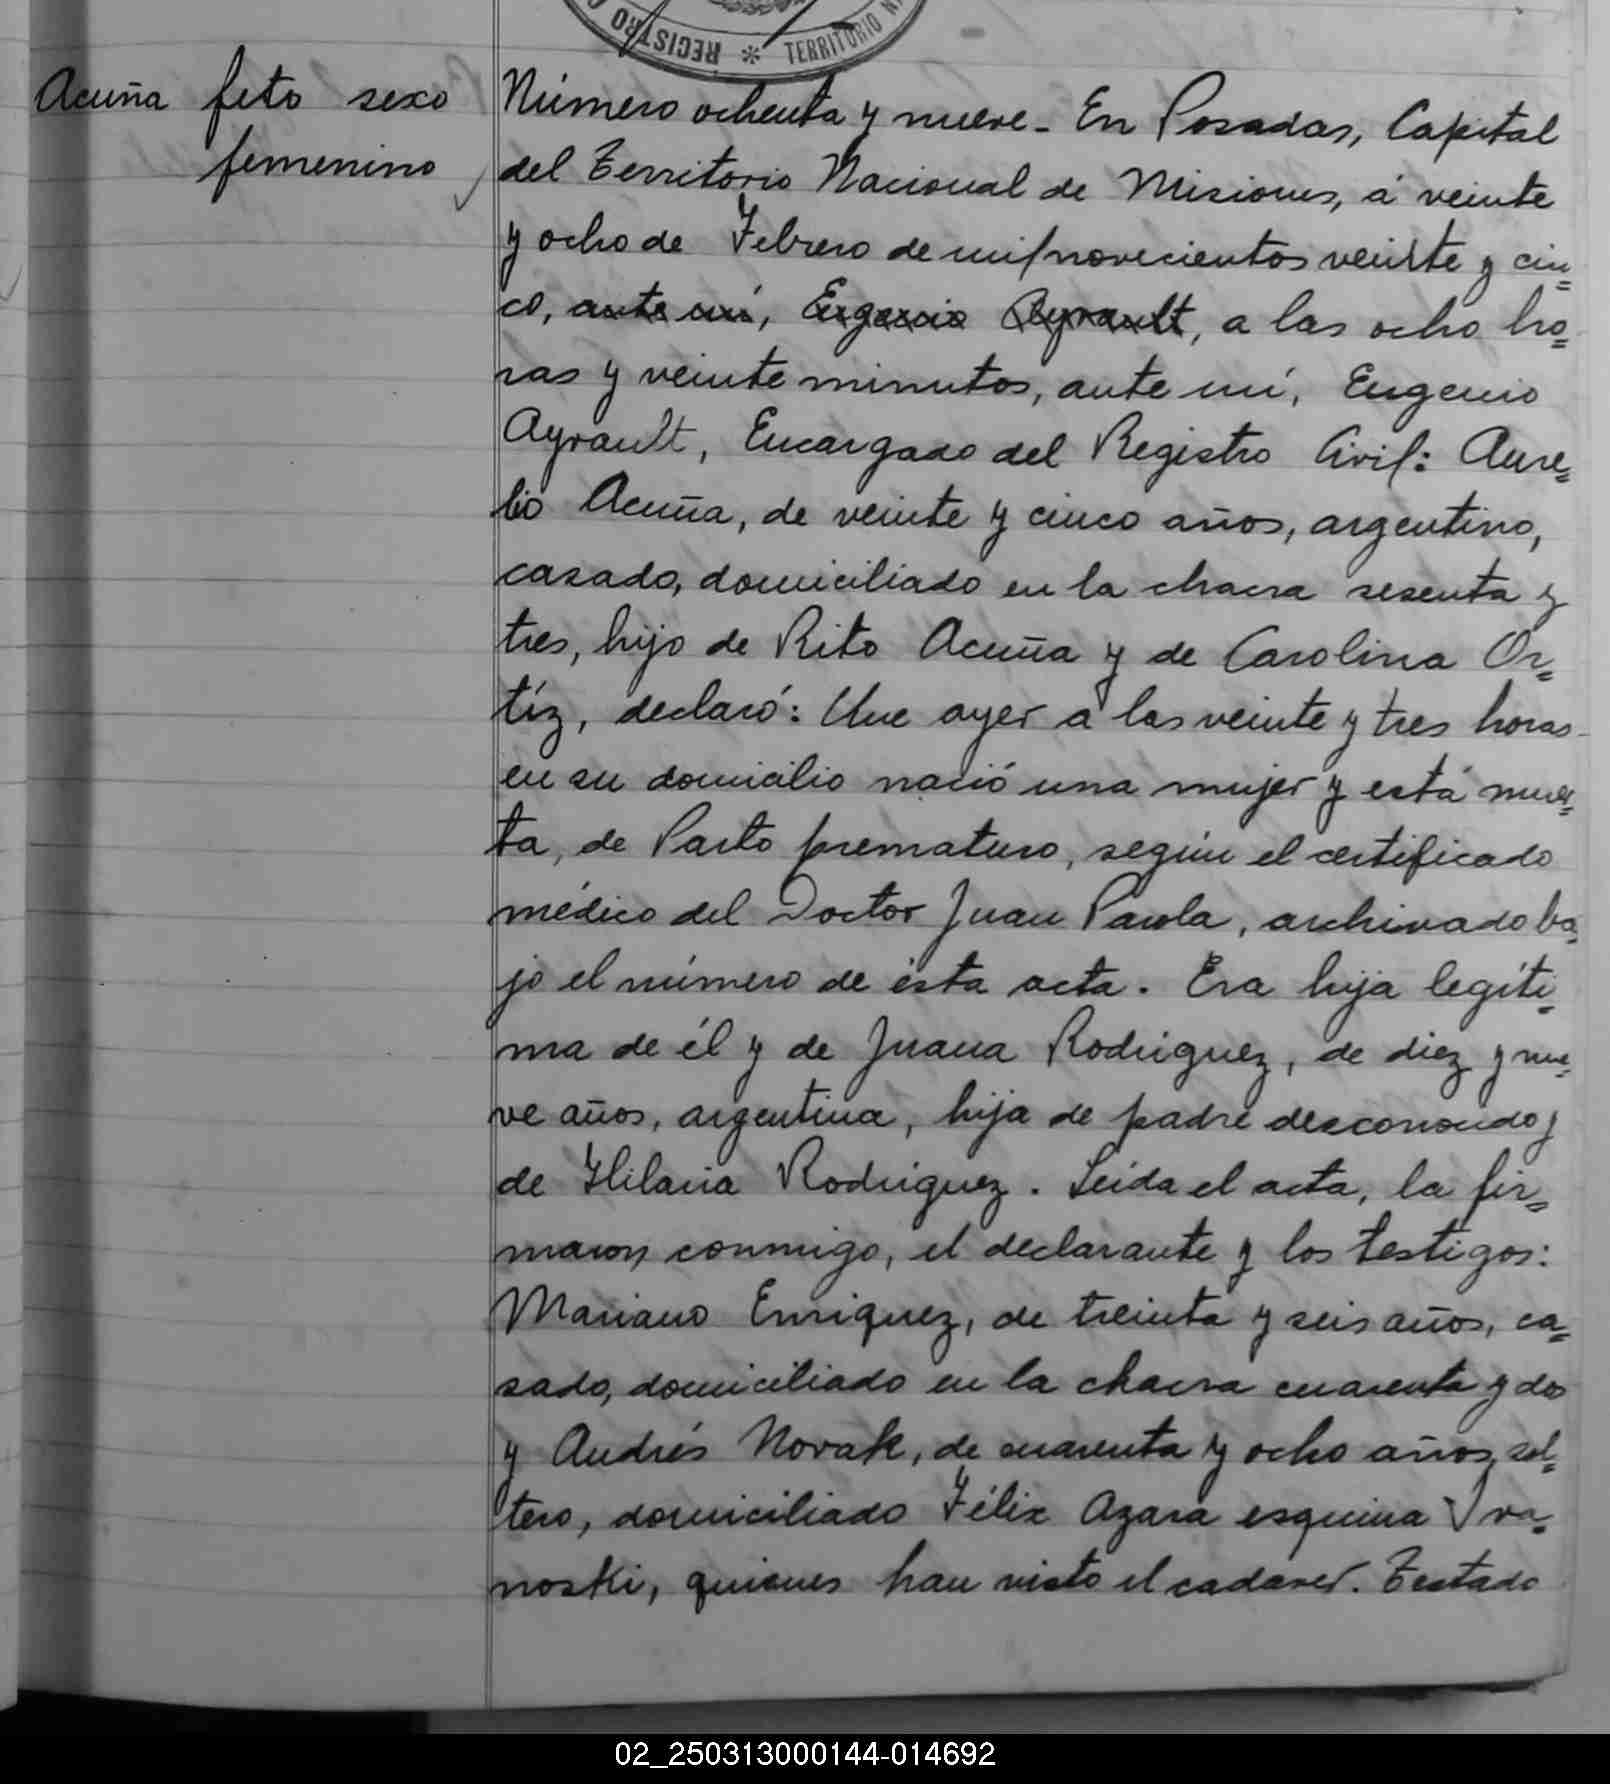 REGISTRO * TERRITORIO
Acuña feto sexo
femenino
Número ochenta y nueve - En Posadas, Capital
del Territorio Nacional de Misiones, á veinte
y ocho de Febrero de mil novecientos veinte y cin=
co, ante mí, Eugenio Ayrault, a las ocho ho=
ras y veinte minutos, ante mí, Eugenio
Ayrault, Encargado del Registro Civil: Aure=
lio Acuña, de veinte y cinco años, argentino,
casado, domiciliado en la chacra sesenta y
tres, hijo de Rito Acuña y de Carolina Or=
tíz, declaró: Que ayer a las veinte y tres horas
en su domicilio nació una mujer y está muer=
ta, de Parto prematuro, según el certificado
médico del Doctor Juan Parola, archivado ba=
jo el número de ésta acta. Era hija legíti=
ma de él y de Juana Rodriguez, de diez y nue=
ve años, argentina, hija de padre desconocido y
de Hilaria Rodriguez. Leida el acta, la fir=
maron conmigo, el declarante y los testigos:
Mariano Enriquez, de treinta y seis años, ca=
sado, domiciliado en la chacra cuarenta y dos
y Andrés Novak, de cuarenta y ocho años, sol=
tero, domiciliado Félix Azara esquina Iva=
noski, quienes han visto el cadaver. Testado
02_250313000144-014692